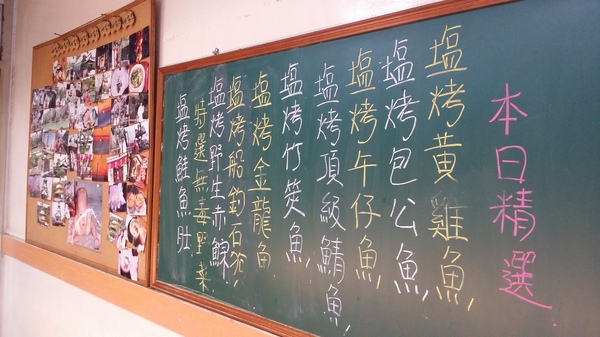 本日精選
塩烤黃雞魚,
塩烤包公魚,
塩烤午仔魚,
塩烤頂級鯖魚,
塩烤竹筴魚,
塩烤金龍魚
塩烤船釣石狗
塩烤野生赤鯮
特選無毒野菜
塩烤鮭魚肚